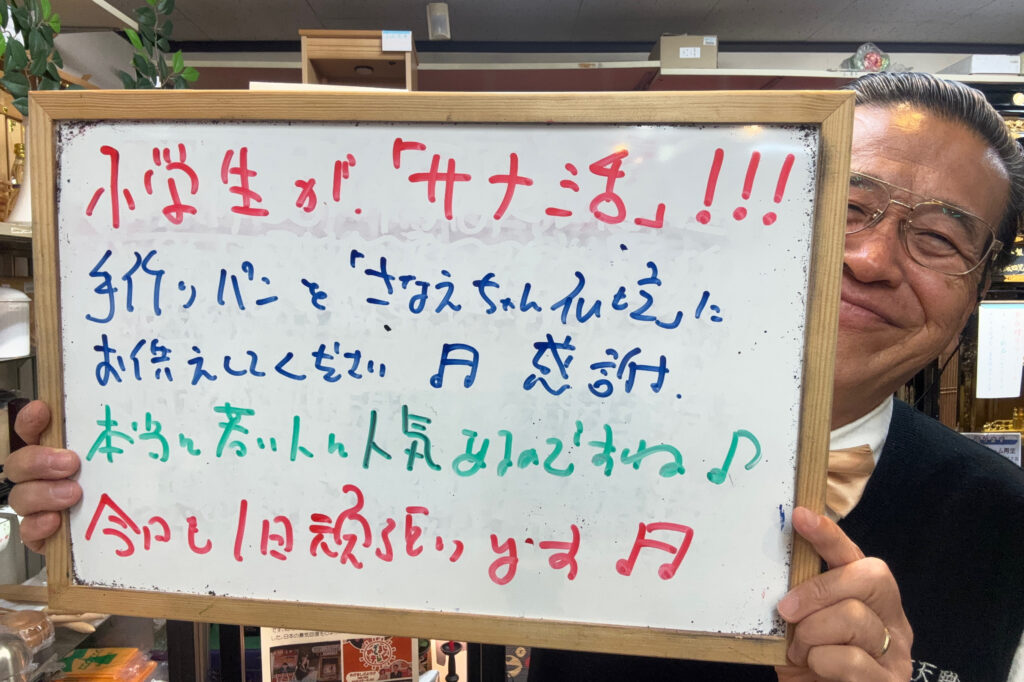 小学生が、「サナ活」!!!
手作りパンを「さなえちゃん仏壇」に
お供えしてください♬ 感謝.
本当に若い人に人気あるのですね♪
今日も1日頑張ります♬